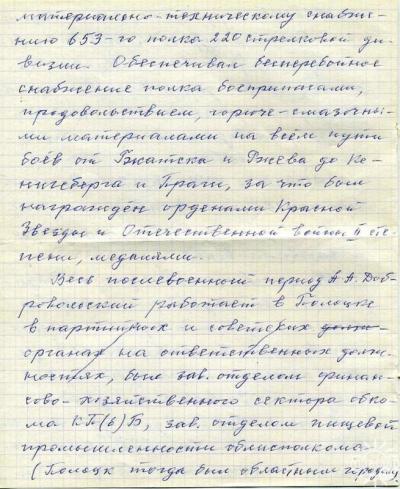 материально-техническому снабже-
нию 653-го полка 220 стрелковой ди-
визии. Обеспечивал бесперебойное
снабжение полка боеприпасами,
продовольствием, горюче-смазочны-
ми материалами на всём пути
боёв от Гжатска и Ржева до Ке-
нигсберга и Праги, за что был
награждён орденами Красной
Звезды и Отечественной войны II сте-
пени, медалями.
Весь послевоенный период А.А. Доб-
ровольский работает в Полоцке
в партийных и советских долж-
органах на ответственных долж-
ностях, был зав. отделом финан-
сово-хозяйственного сектора обко-
ма КП(б)Б, зав. отделом пищевой
промышленности облисполкома
(Полоцк тогда был областным городом